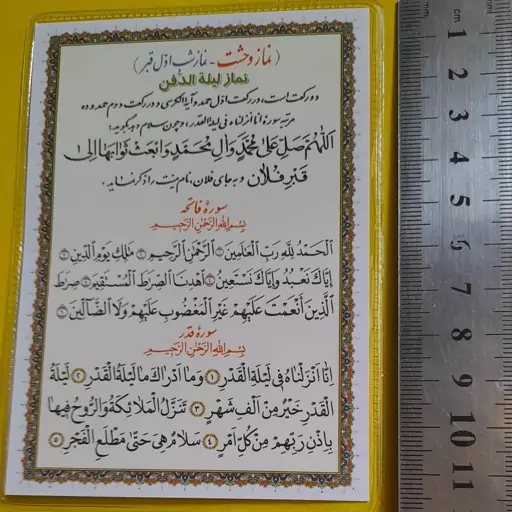 ( نماز وحشت - نماز شب اوّل قبر )
نماز لیلة الدفن
دو رکعت است، در رکعت اوّل حمد و آیة الکرسی و در رکعت دوم حمد و ده
مرتبه سورهٔ انا انزلناه فی لیلة القدر، و چون سلام دهد بگوید:
اَللّهُمَّ صَلِّ عَلی مُحَمَّدٍ وَ الِ مُحَمَّدٍ وَ ابْعَثْ ثَوابَها اِلی
قَبْرِ فُلان و به جای فلان، نام میّت را ذکر نماید.
سورهٔ فاتحه
بِسْمِ اللهِ الرَّحْمٰنِ الرَّحیمِ
اَلْحَمْدُ لِلّهِ رَبِّ الْعالَمینَ ﴿۲﴾ اَلرَّحْمٰنِ الرَّحیمِ ﴿۳﴾ مالِكِ یَوْمِ الدّینِ ﴿۴﴾
اِیّاكَ نَعْبُدُ وَ اِیّاكَ نَسْتَعینُ ﴿۵﴾ اِهْدِنَا الصِّراطَ الْمُسْتَقیمَ ﴿۶﴾ صِراطَ
الَّذینَ اَنْعَمْتَ عَلَیْهِمْ غَیْرِ الْمَغْضُوبِ عَلَیْهِمْ وَلَا الضّالّینَ ﴿۷﴾
سورهٔ قدر
بِسْمِ اللهِ الرَّحْمٰنِ الرَّحیمِ
اِنّا اَنْزَلْناهُ فی لَیْلَةِ الْقَدْرِ ﴿۱﴾ وَ ما اَدْراكَ ما لَیْلَةُ الْقَدْرِ ﴿۲﴾ لَیْلَةُ
الْقَدْرِ خَیْرٌ مِنْ اَلْفِ شَهْرٍ ﴿۳﴾ تَنَزَّلُ الْمَلائِكَةُ وَ الرُّوحُ فیها
بِاِذْنِ رَبِّهِمْ مِنْ كُلِّ اَمْرٍ ﴿۴﴾ سَلامٌ هِیَ حَتّی مَطْلَعِ الْفَجْرِ ﴿۵﴾
cm
1
2
3
4
5
6
7
8
9
10
11